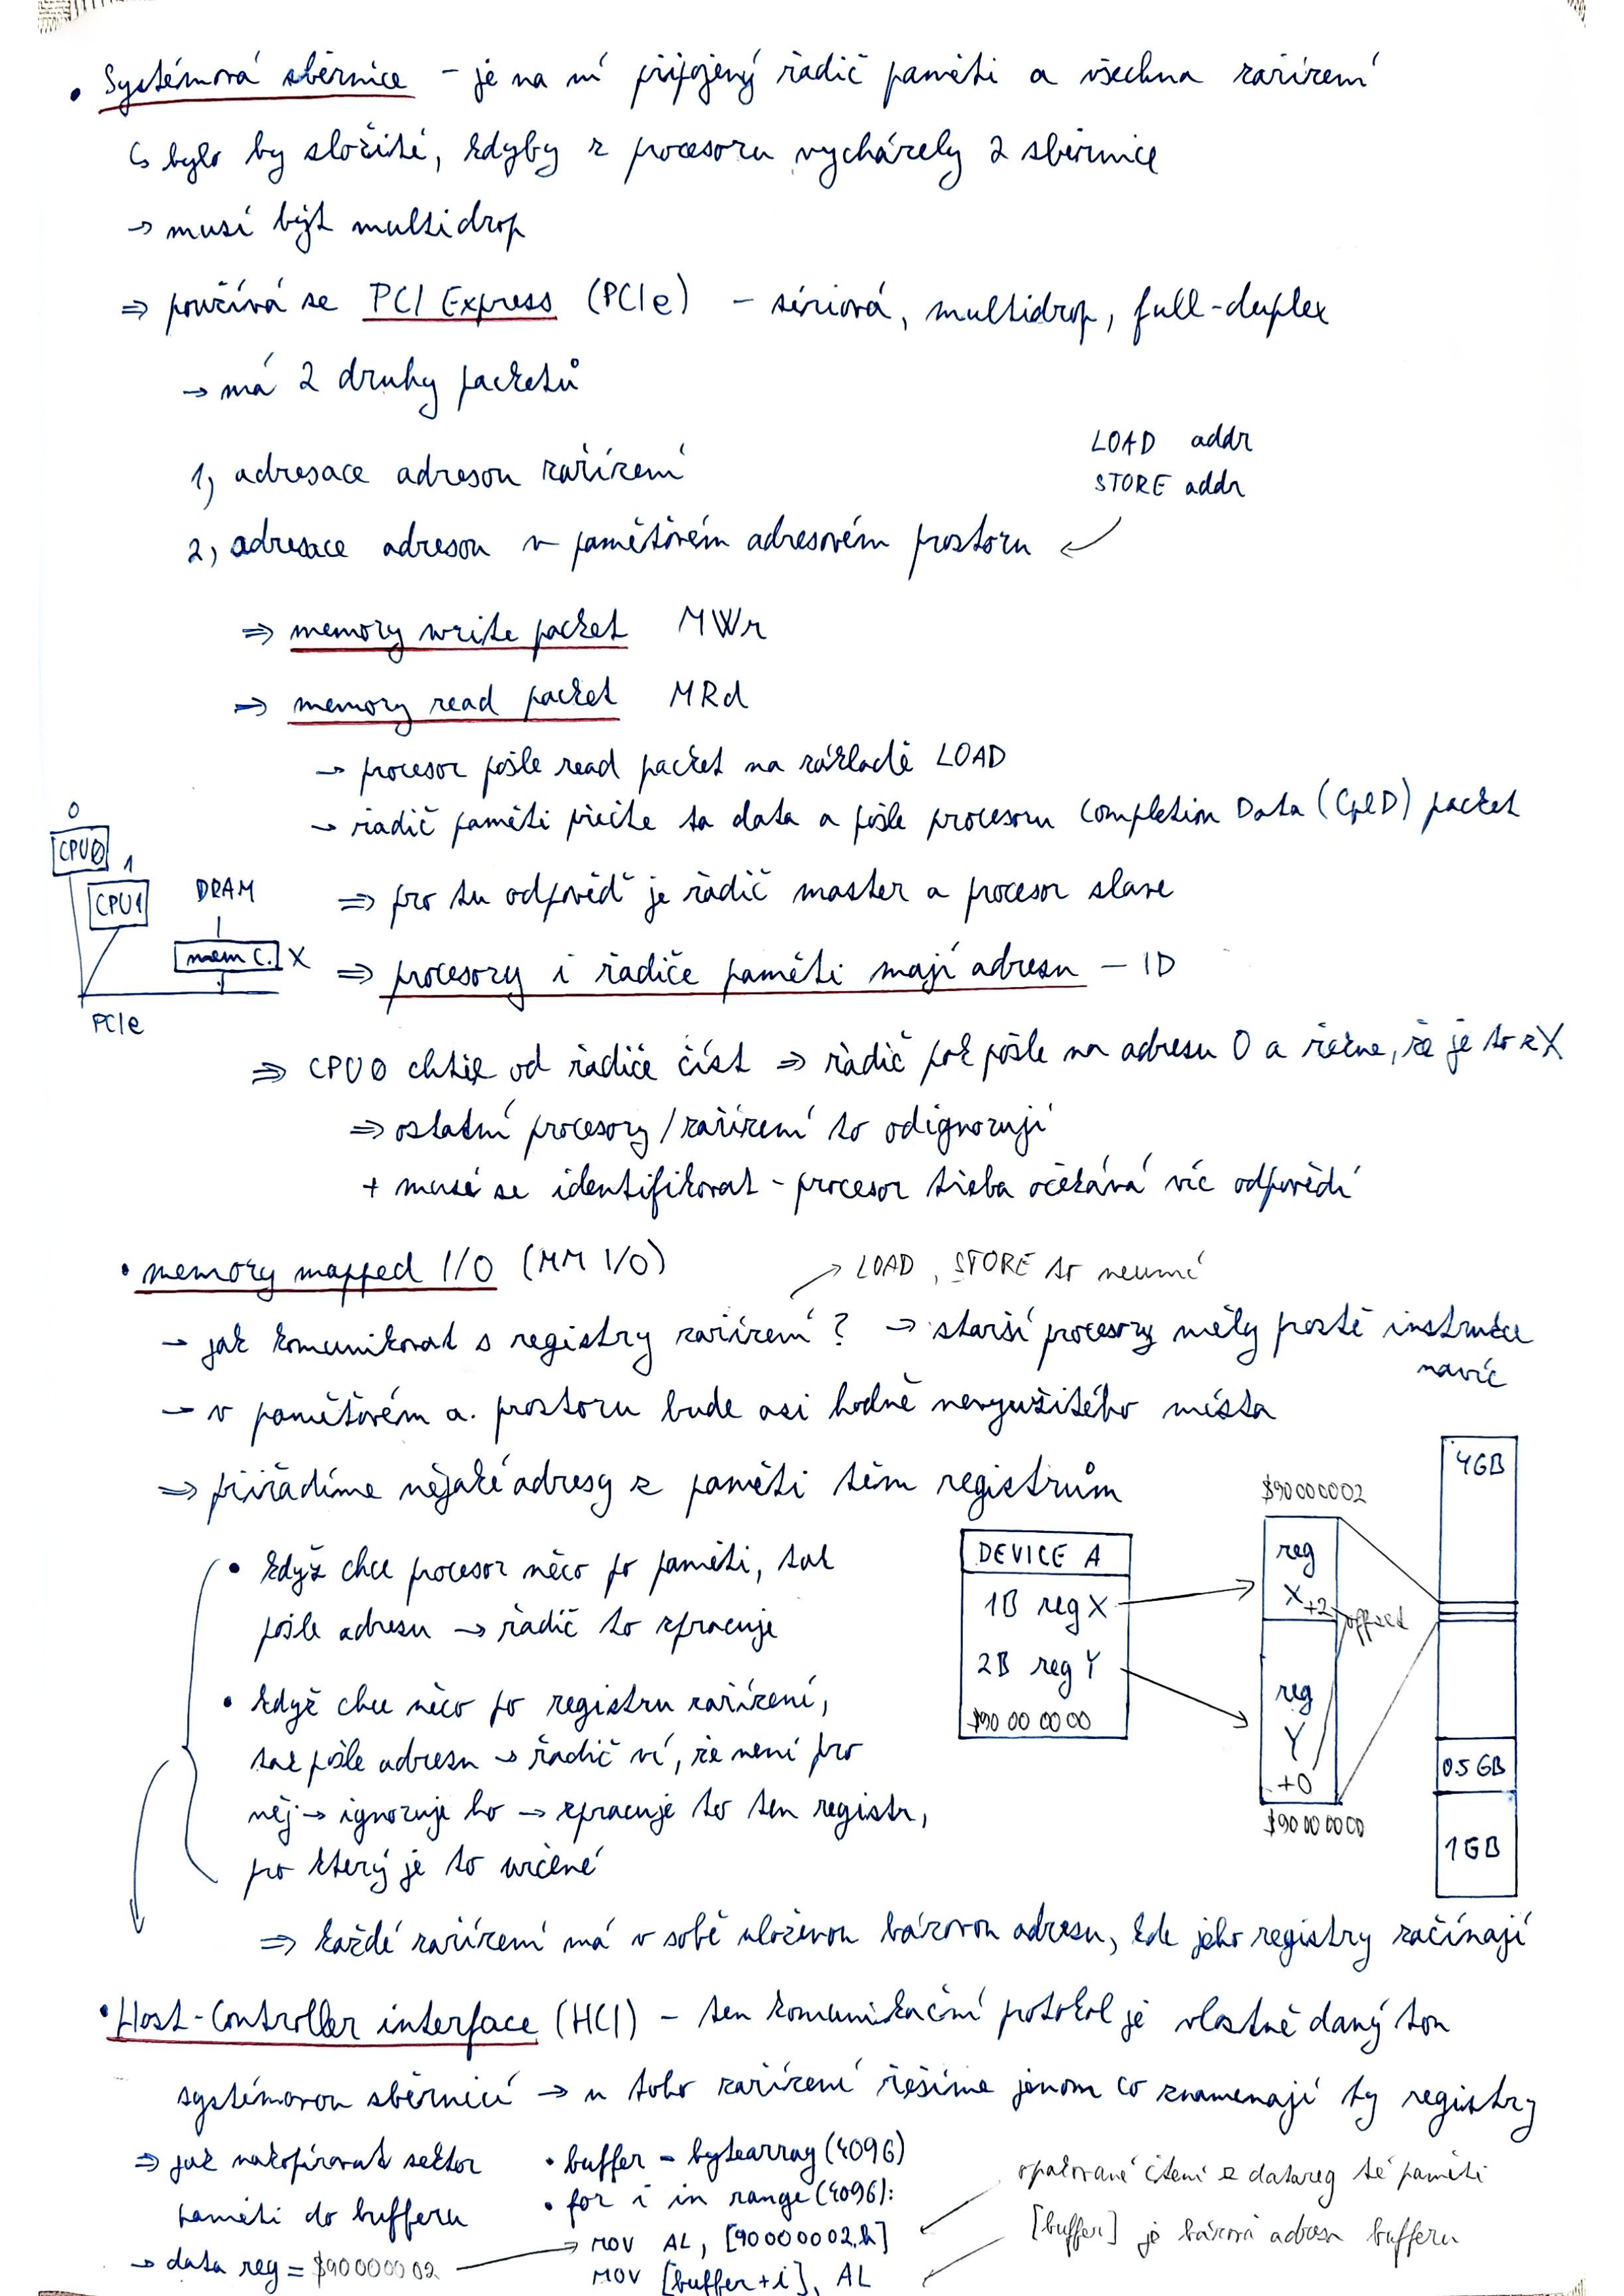 • Systémová sběrnice - je na ní připojený řadič paměti a všechna zařízení
↳ bylo by složité, kdyby z procesoru vycházely 2 sběrnice
→ musí být multidrop
⇒ používá se PCI Express (PCIe) - sériová, multidrop, full-duplex
→ má 2 druhy packetů
1, adresace adresou zařízení
LOAD addr
STORE addr
2, adresace adresou v paměťovém adresovém prostoru
⇒ memory write packet MWr
⇒ memory read packet MRd
→ procesor pošle read packet na základě LOAD
→ řadič paměti přečte ta data a pošle procesoru Completion Data (CplD) packet
⇒ pro tu odpověď je řadič master a procesor slave
⇒ procesory i řadiče paměti mají adresu - ID
0
CPU0
1
CPU1
DRAM
mem C. X
PCIe
⇒ CPU0 chtěl od řadiče číst ⇒ řadič pak pošle na adresu 0 a řekne, že je to z X
⇒ ostatní procesory/zařízení to odignorují
+ musí se identifikovat - procesor třeba očekává víc odpovědí
• memory mapped I/O (MM I/O)
→ LOAD, STORE to neumí
→ jak komunikovat s registry zařízení? → starší procesory měly prostě instrukce
navíc
→ v paměťovém a. prostoru bude asi hodně nevyužitého místa
⇒ přiřadíme nějaké adresy z paměti těm registrům
• když chce procesor něco po paměti, tak
pošle adresu → řadič to zpracuje
• když chce něco po registru zařízení,
tak pošle adresu → řadič ví, že není pro
něj → ignoruje ho → zpracuje to ten registr,
pro který je to určené
DEVICE A
1B reg X
2B reg Y
$90 00 00 00
$90000002
reg
X +2 offset
reg
Y
+0
$90 00 00 00
4GB
0.5 GB
1GB
⇒ každé zařízení má v sobě uloženou bázovou adresu, kde jeho registry začínají
• Host-Controller interface (HCI) - ten komunikační protokol je vlastně daný tou
systémovou sběrnicí → u toho zařízení řešíme jenom co znamenají ty registry
⇒ jak nakopírovat sektor
paměti do bufferu
→ data reg = $90000002
• buffer = bytearray(4096)
• for i in range(4096):
MOV AL, [90000002h]
MOV [buffer+i], AL
opakované čtení z datareg té paměti
[buffer] je bázová adresa bufferu